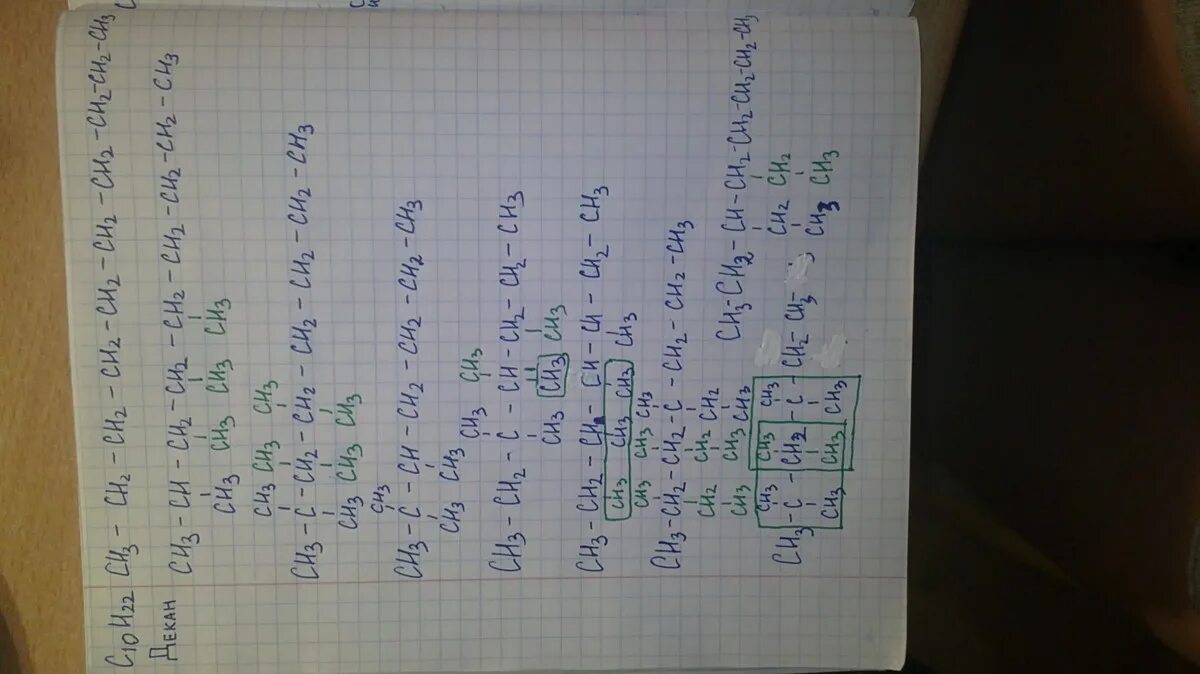 C10H22 CH3 - CH2 - CH2 - CH2 - CH2 - CH2 - CH2 - CH2 - CH2 - CH3
Декан
CH3 - CH - CH2 - CH2 - CH2 - CH2 - CH2 - CH2 - CH3
CH3 CH3 CH3 CH3
CH3 CH3 CH3
CH3 - C - CH2 - CH2 - CH2 - CH2 - CH2 - CH3
CH3 CH3 CH3
CH3
CH3 - C - CH - CH2 - CH2 - CH2 - CH3
CH3 CH3
CH3 CH3
CH3 - CH2 - C - CH - CH2 - CH2 - CH3
CH3 CH3 CH3
CH3 - CH2 - CH - CH - CH - CH2 - CH3
CH3 CH3 CH3 CH3
CH3 CH3 CH3
CH3 - CH2 - CH2 - C - CH2 - CH2 - CH3
CH2 CH2 CH2
CH3 CH3 CH3
CH3 - CH2 - CH - CH2 - CH2 - CH2 - CH3
CH2 CH2
CH3 CH3
CH3 CH3 CH3
CH3 - C - CH2 - C - CH2 - CH3 -
CH3 CH3 CH3